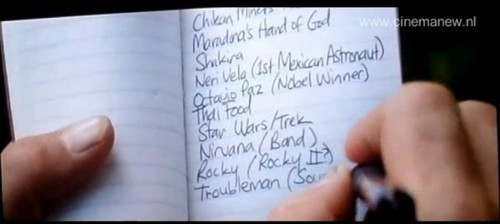 www.cinemanew.nl
Chikan Miners
Maradona's Hand of God
Shakira
Neri Vela (1st Mexican Astronaut)
Octavio Paz (Nobel Winner)
Thai Food
Star Wars/Trek
Nirvana (Band)
Rocky (Rocky II?)
Troubleman (Sou